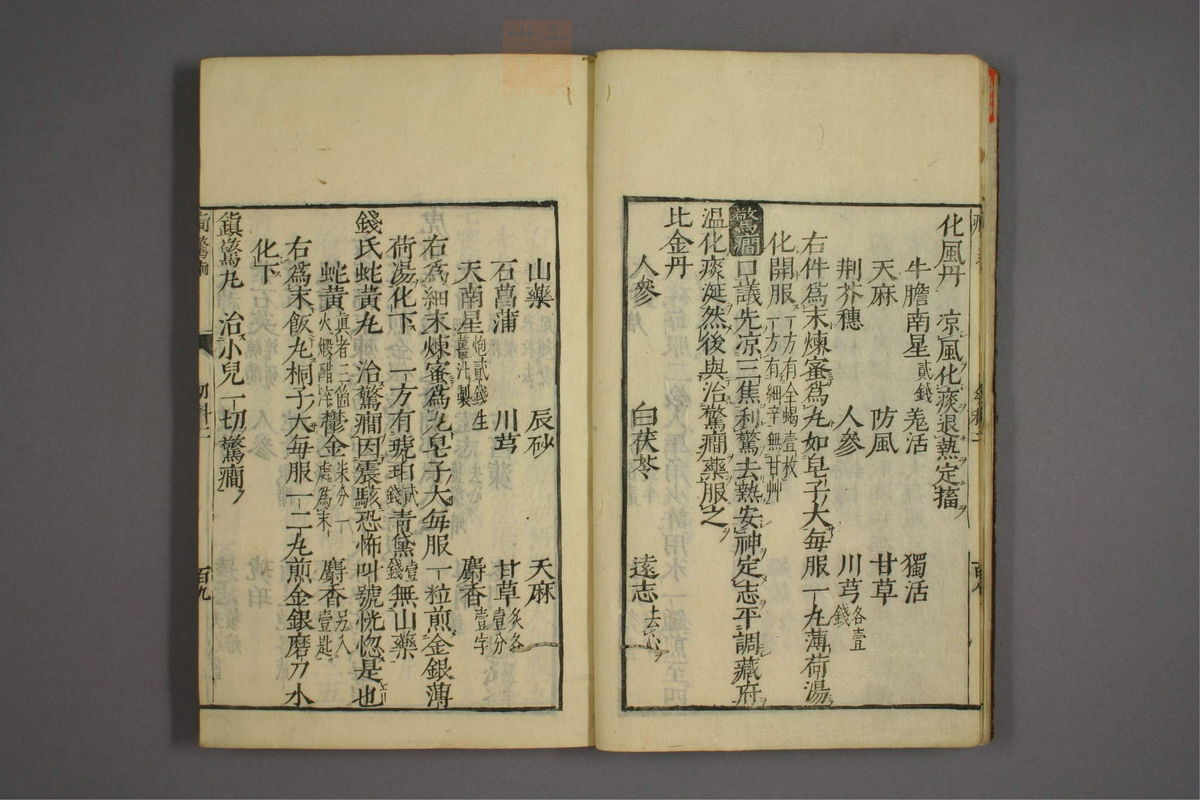 化風丹 凉風化痰退熱定搐
牛膽南星貳錢 羗活 獨活
天麻 防風 甘草
荆芥穗 人參 川芎各壹錢
右件爲末煉蜜爲丸如皂子大每服一丸薄荷湯
化開服一方有全蝎壹枚一方有細辛無甘艸
驚癎口議先凉三焦利驚去熱安神定志平調藏府
溫化痰涎然後與治驚癎藥服之
比金丹
人參 白茯苓 遠志去心
山藥 辰砂 天麻
石菖蒲 川芎 甘草炙各壹分
天南星炮貳錢生薑汁製 麝香壹字
右爲細末煉蜜爲丸皂子大每服一粒煎金銀薄
荷湯化下 一方有琥珀貳錢青黛壹錢無山藥
錢氏蛇黃丸 治驚癎因震駭恐怖叫號恍惚是也
蛇黃眞者三箇火煅醋淬 鬱金柒分一處爲末 麝香另入壹匙
右爲末飯丸桐子大每服一二丸煎金銀磨刀水
化下
鎭驚丸 治小兒一切驚癎
百九